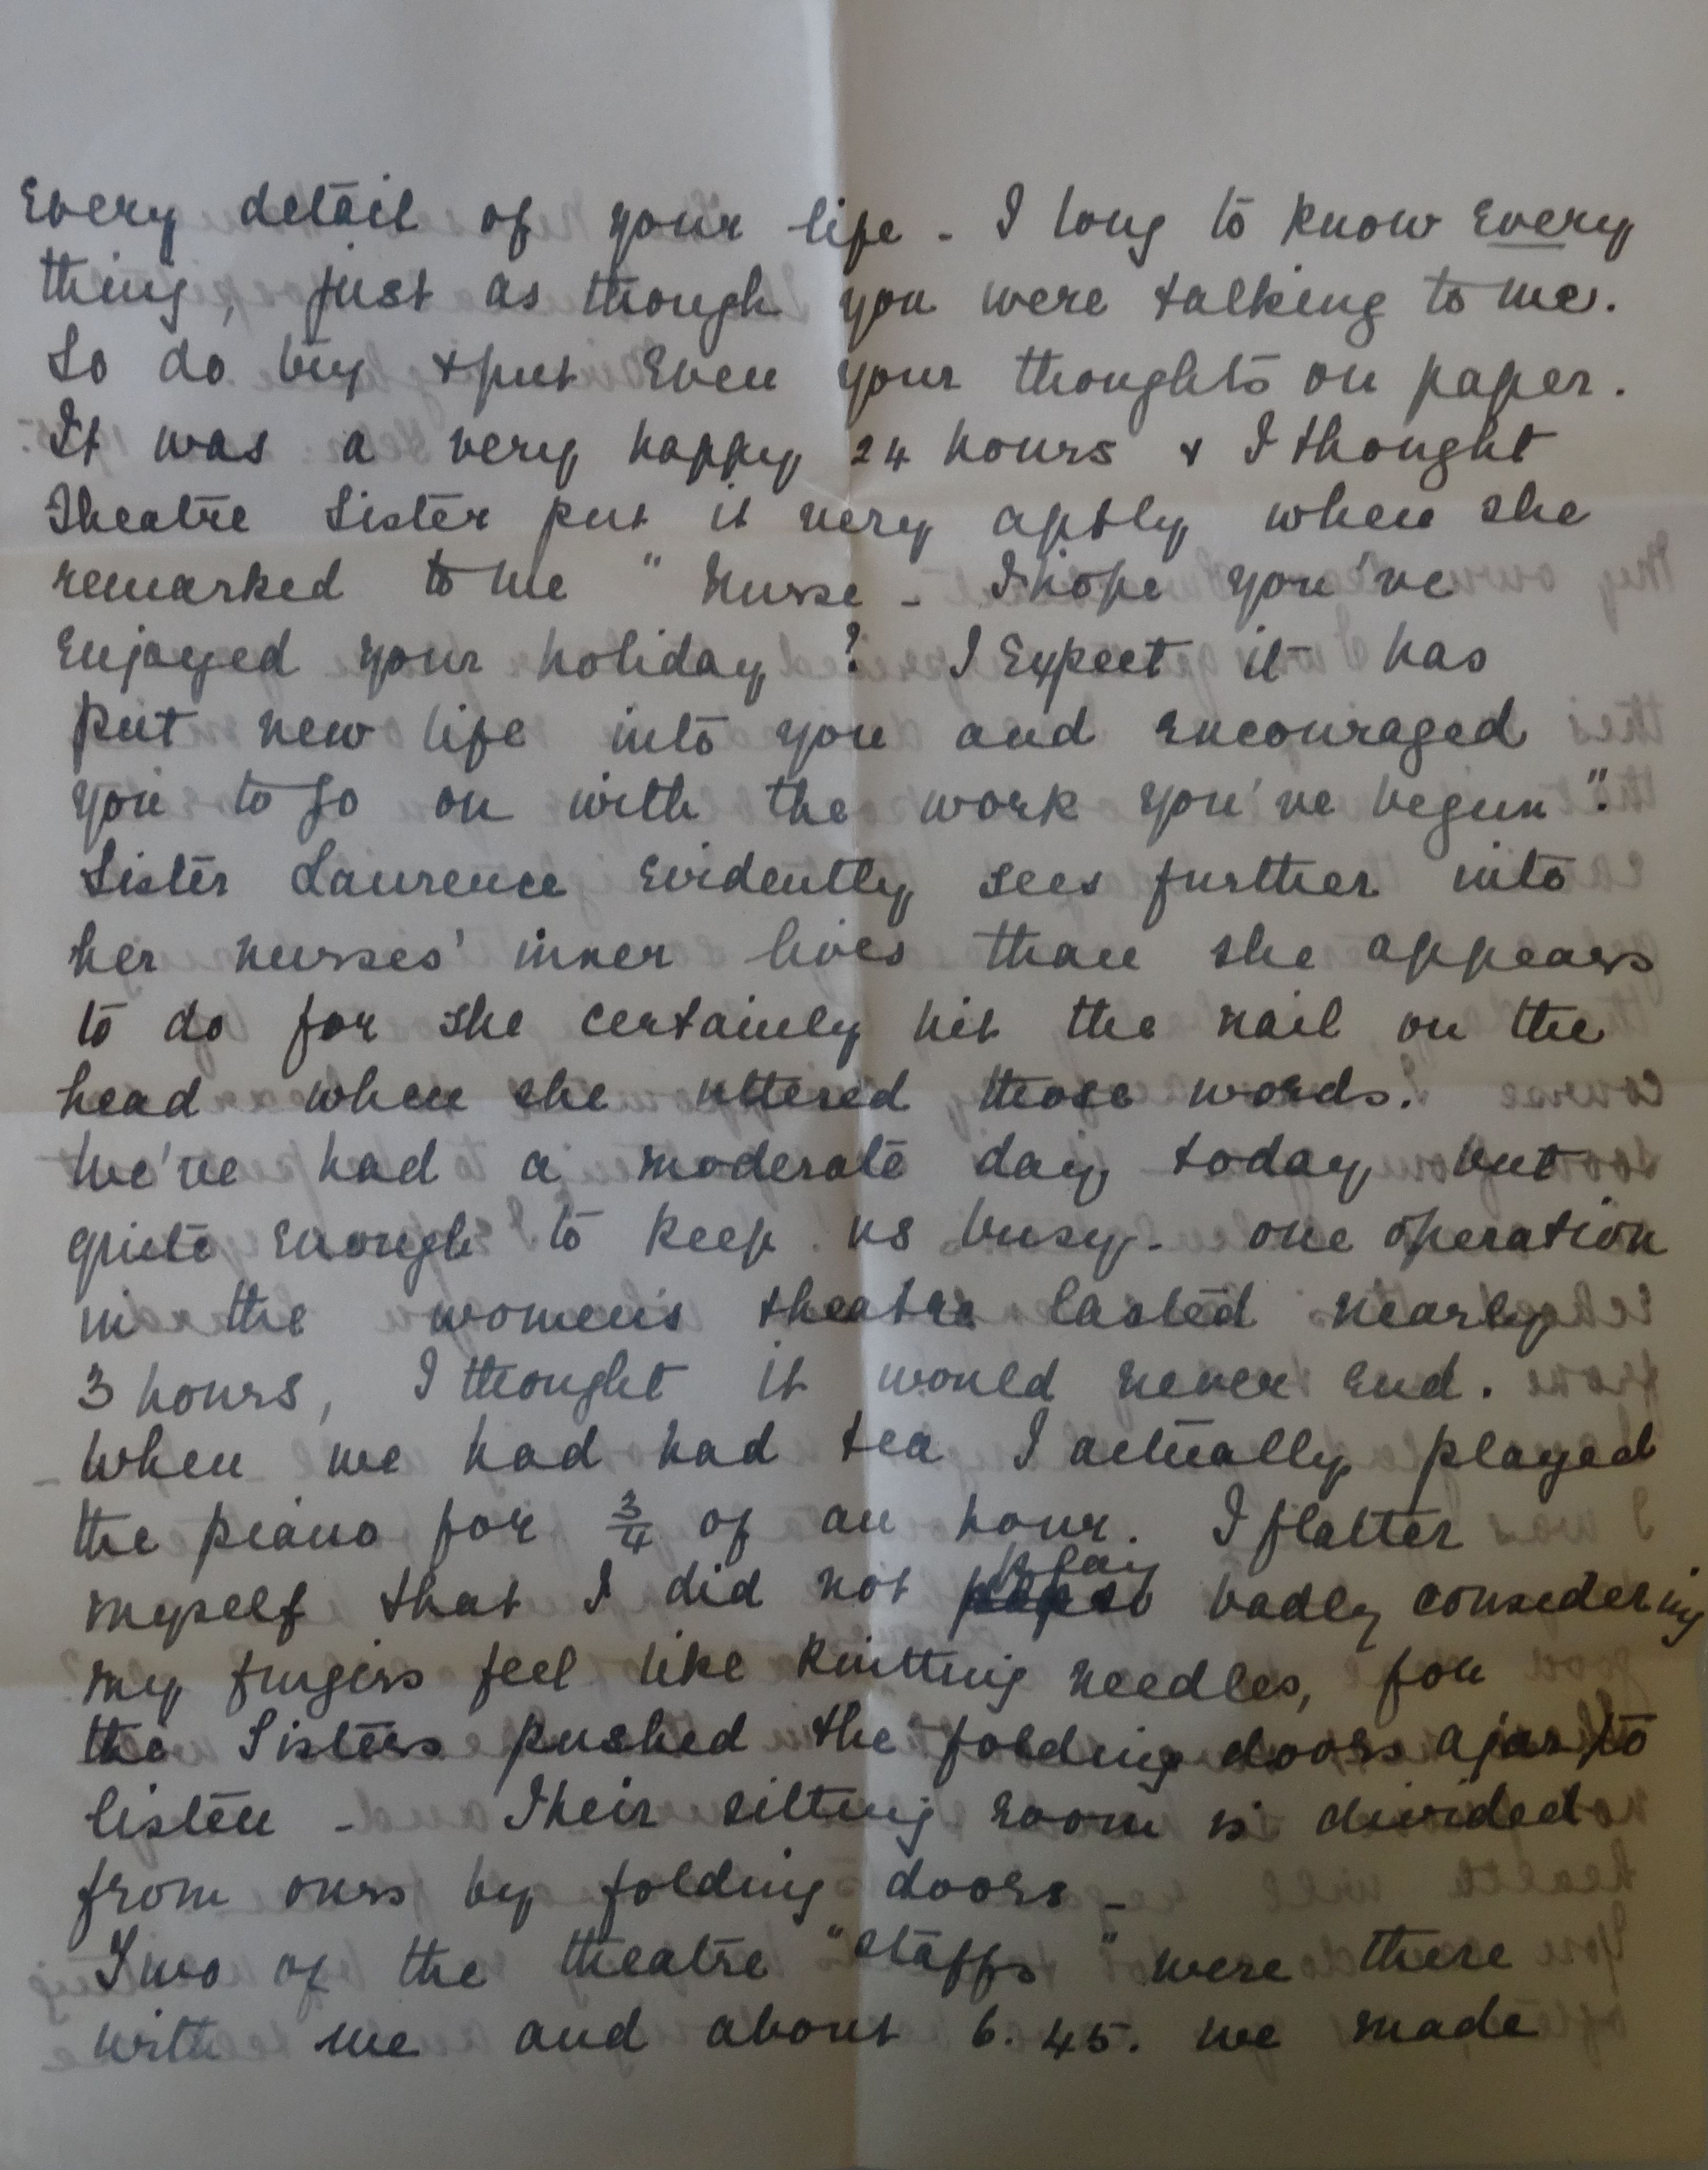 Every detail of your life - I long to know every
thing, just as though you were talking to me.
So do try & put even your thoughts on paper.
It was a very happy 24 hours & I thought
Theatre Sister put it very aptly when she
remarked to me "Nurse - I hope you've
enjoyed your holiday? I expect it has
put new life into you and encouraged
you to go on with the work you've begun".
Sister Laurence evidently sees further into
her nurses' inner lives than she appears
to do for she certainly hit the nail on the
head when she uttered those words.
We've had a moderate day today but
quite enough to keep us busy - one operation
in the women's theatre lasted nearly
3 hours, I thought it would never end.
When we had had tea I actually played
the piano for ¾ of an hour. I flatter
myself that I did not play badly considering
my fingers feel like knitting needles, for
the Sisters pushed the folding doors ajar to
listen - Their sitting room is divided
from ours by folding doors -
Two of the theatre "staffs" were there
with me and about 6.45. we made